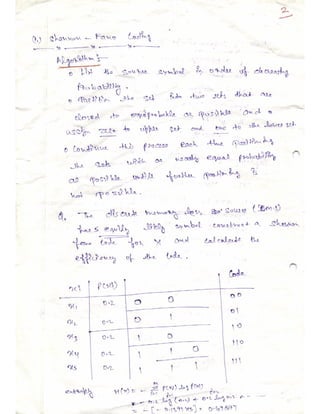 2
Q.) Shannon - Fano Coding
Algorithm :-
o List the source symbol in order of decreasing
Probability.
o Partition the set into two sets that are
closed to equiprobable as possible and
assign zero to upper set and one to the lower set
o Continue this process each time partitioning
the sets with as nearly equal probability
as possible until further partitioning is
not possible.
Q. The discrete memory less source (DMS)
has 5 equally likely symbol construct a Shannon
fano code for x and calculate the
efficiency of the code.
xi P(xi) Code
x1 0.2 0 0 00
x2 0.2 0 1 01
x3 0.2 1 0 10
x4 0.2 1 1 0 110
x5 0.2 1 1 1 111
entropy H(x) = - P(xi) log P(xi)